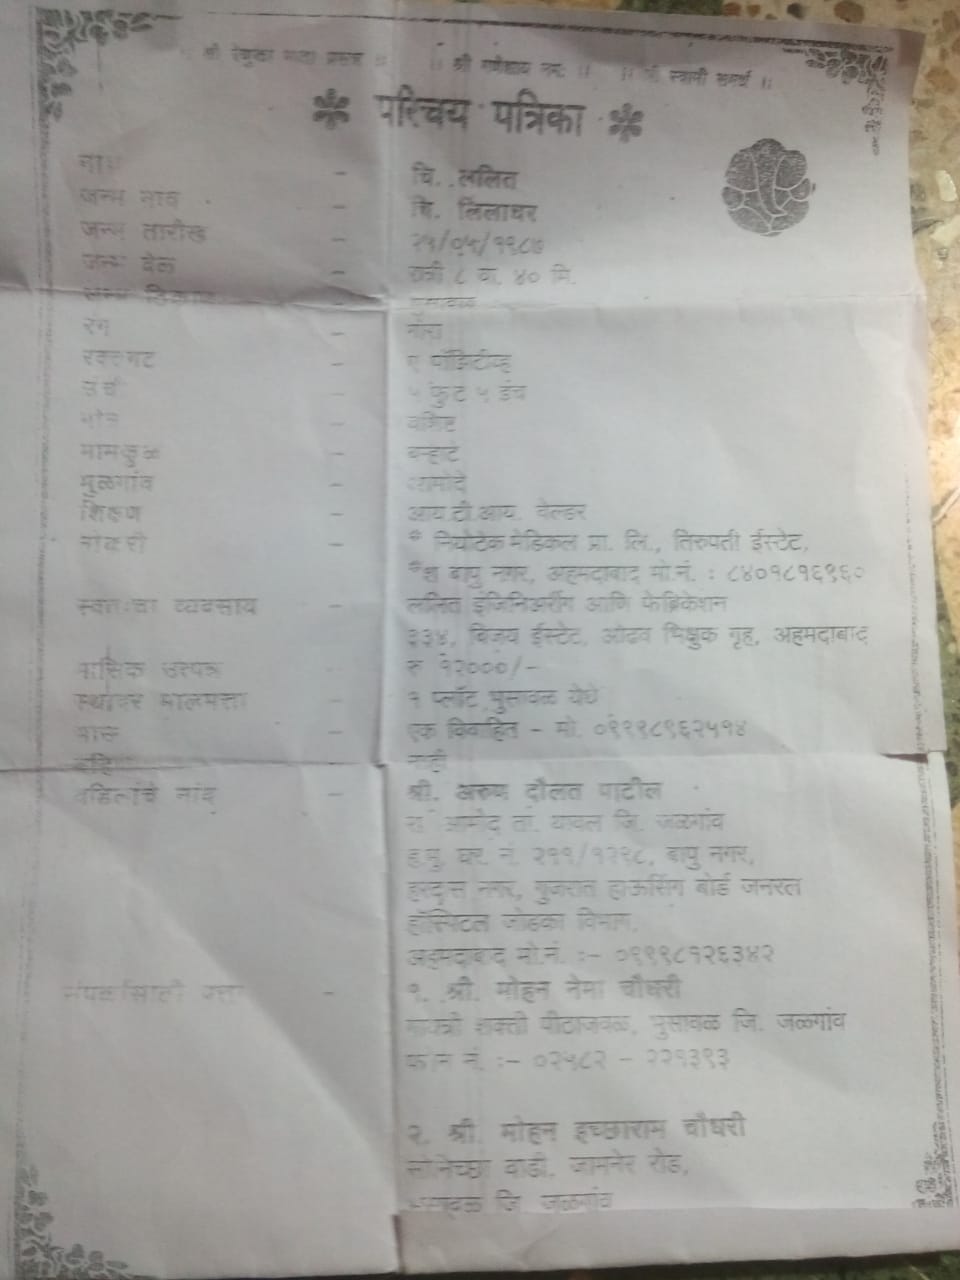 श्री रेणुका माता प्रसन्न ॥ ॥ श्री गणेशाय नमः ॥ ॥ श्री स्वामी समर्थ ॥
परिचय पत्रिका
नाव - चि. ललित
जन्म नाव - चि. लिलाधर
जन्म तारीख - /०५/१९८७
जन्म वेळ - रात्री ८ वा. ४० मि.
जन्म ठिकाण
रंग - गोरा
रक्तगट - ए पॉझिटीव्ह
उंची - ५ फुट ५ इंच
गोत्र - वशिष्ट
मामकुळ - बऱ्हाटे
मुळगांव - आमोदे
शिक्षण - आय.टी.आय. वेल्डर
नोकरी - * नियोटेक मेडिकल प्रा. लि., तिरुपती ईस्टेट,
बापु नगर, अहमदाबाद मो.नं. : ८४०१८१६९६०
स्वतःचा व्यवसाय - ललित इंजिनिअरींग आणि फेब्रिकेशन
३३४, विजय ईस्टेट, ओढव भिक्षुक गृह, अहमदाबाद
मासिक उत्पन्न - रु १२०००/-
स्थावर मालमत्ता - १ प्लॉट भुसावळ येथे
भाऊ - एक विवाहित - मो.
बहिण नाही
वडिलांचे नांव - श्री. अरुण दौलत पाटील
रा. आमोदे ता. यावल जि. जळगांव
ह.मु. घर. नं. २११/१२९८, बापु नगर,
हरदास नगर, गुजरात हाऊसिंग बोर्ड जनरल
हॉस्पिटल जोडका विभाग,
अहमदाबाद मो.नं. :- ०९९९८१२६३४२
संपर्कासाठी पत्ता - १. श्री. मोहन नेमा चौधरी
गायत्री शक्ती पीठाजवळ, भुसावळ जि. जळगांव
फोन नं. :- ०२५८२ - २२१३९३
२. श्री. मोहन इच्छाराम चौधरी
सोनिच्छा वाडी, जामनेर रोड,
भुसावळ जि. जळगांव